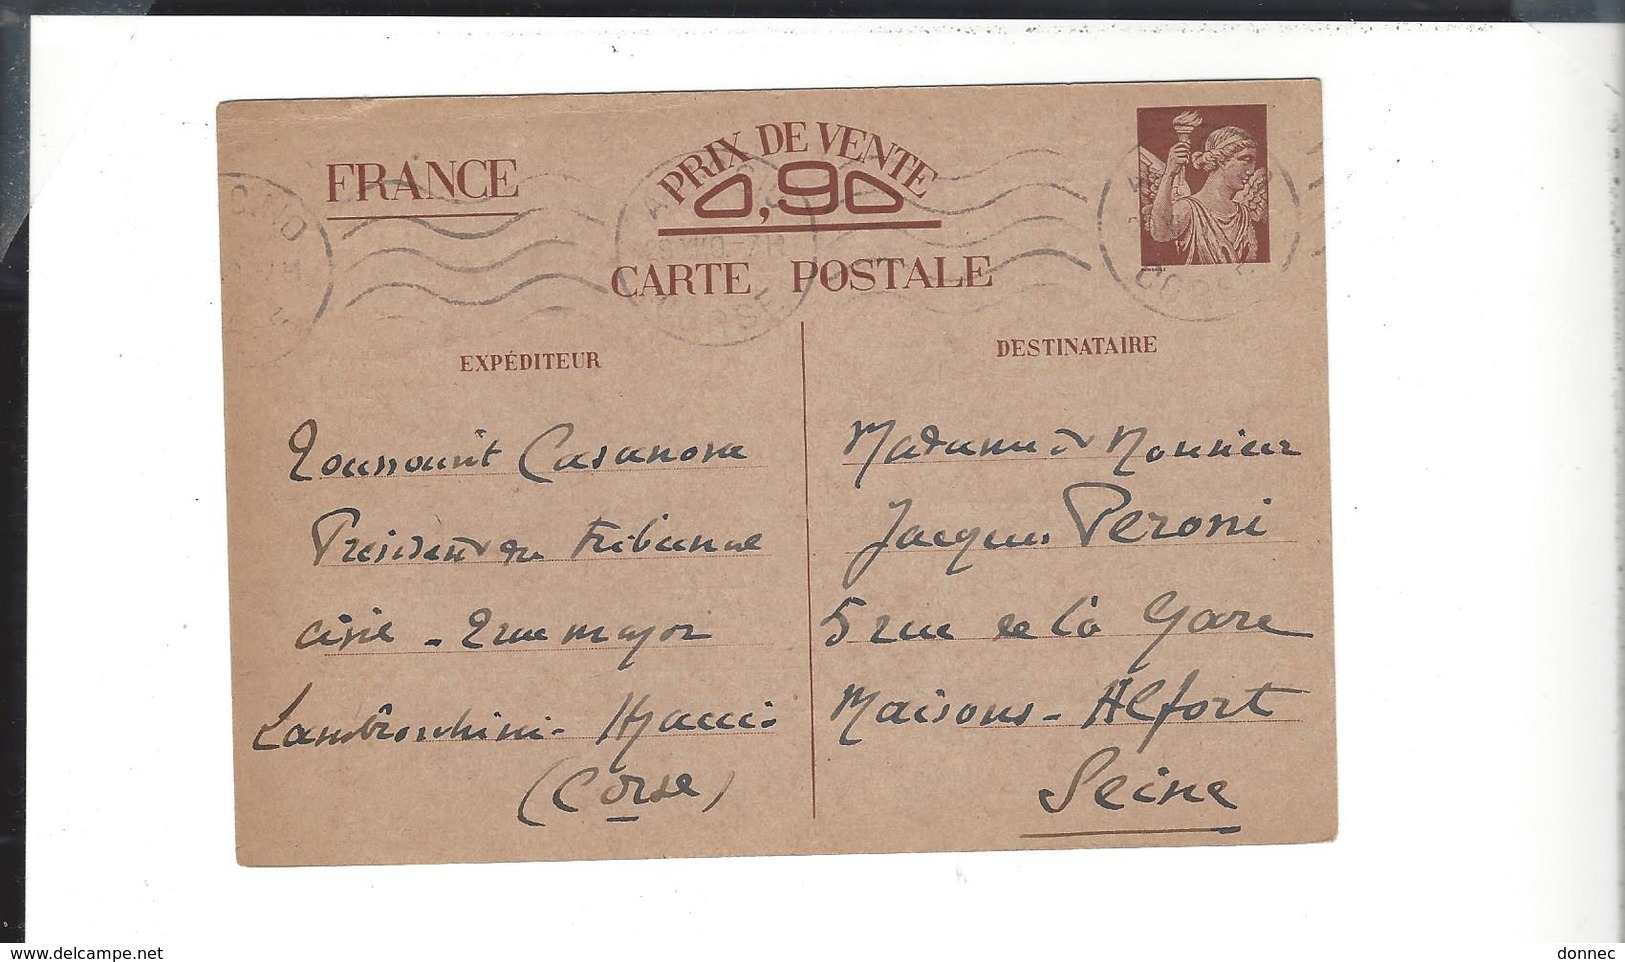 PRIX DE VENTE
FRANCE
0,90
CARTE POSTALE
CORSE
CORSE
EXPÉDITEUR
Toussaint Casanova
Président du Tribunal
civil - 2 rue major
Lambroschini - Ajaccio
(Corse)
DESTINATAIRE
Madame & Monsieur
Jacques Peroni
5 rue de la Gare
Maisons-Alfort
Seine
www.delcampe.net
donnec